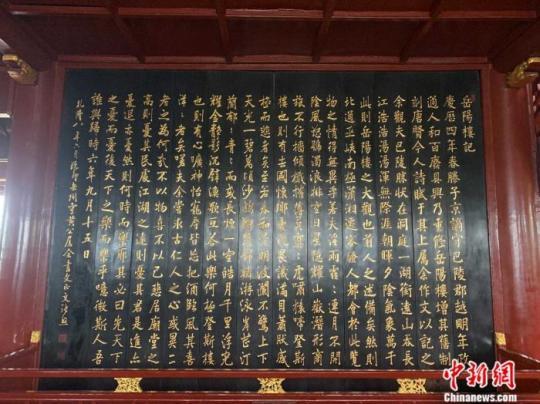 岳陽樓記
慶曆四年春滕子京謫守巴陵郡越明年政
通人和百廢具興乃重修岳陽樓增其舊制
刻唐賢今人詩賦于其上屬余作文以記之
余觀夫巴陵勝狀在洞庭一湖銜遠山吞長
江浩浩湯湯渾無際涯朝暉夕陰氣象萬千
此則岳陽樓之大觀也前人之述備矣然則
北通巫峽南極瀟湘遷客騷人都會於此覽
物之情得無異乎若夫霪雨霏霏連月不開
陰風怒號濁浪排空日星隱耀山嶽潛形商
旅不行檣傾楫摧薄暮冥冥虎嘯猿啼登斯
樓也則有去國懷鄉憂讒畏譏滿目蕭然感
極而悲者矣至若春和景明波瀾不驚上下
天光一碧萬頃沙鷗翔集錦鱗游泳岸芷汀
蘭郁=青=而或長煙一空皓月千里浮光
耀金靜影沉璧漁歌互答此樂何極登斯樓
也則有心曠神怡寵辱皆忘把酒臨風其喜
洋=者矣嗟夫余嘗求古仁人之心或異二
者之為何哉不以物喜不以己悲居廟堂之
高則憂其民處江湖之遠則憂其君是進亦
憂退亦憂然則何時而樂耶其必曰先天下
之憂而憂後天下之樂而樂乎噫微斯人吾
誰與歸時六年九月十五日
中新网